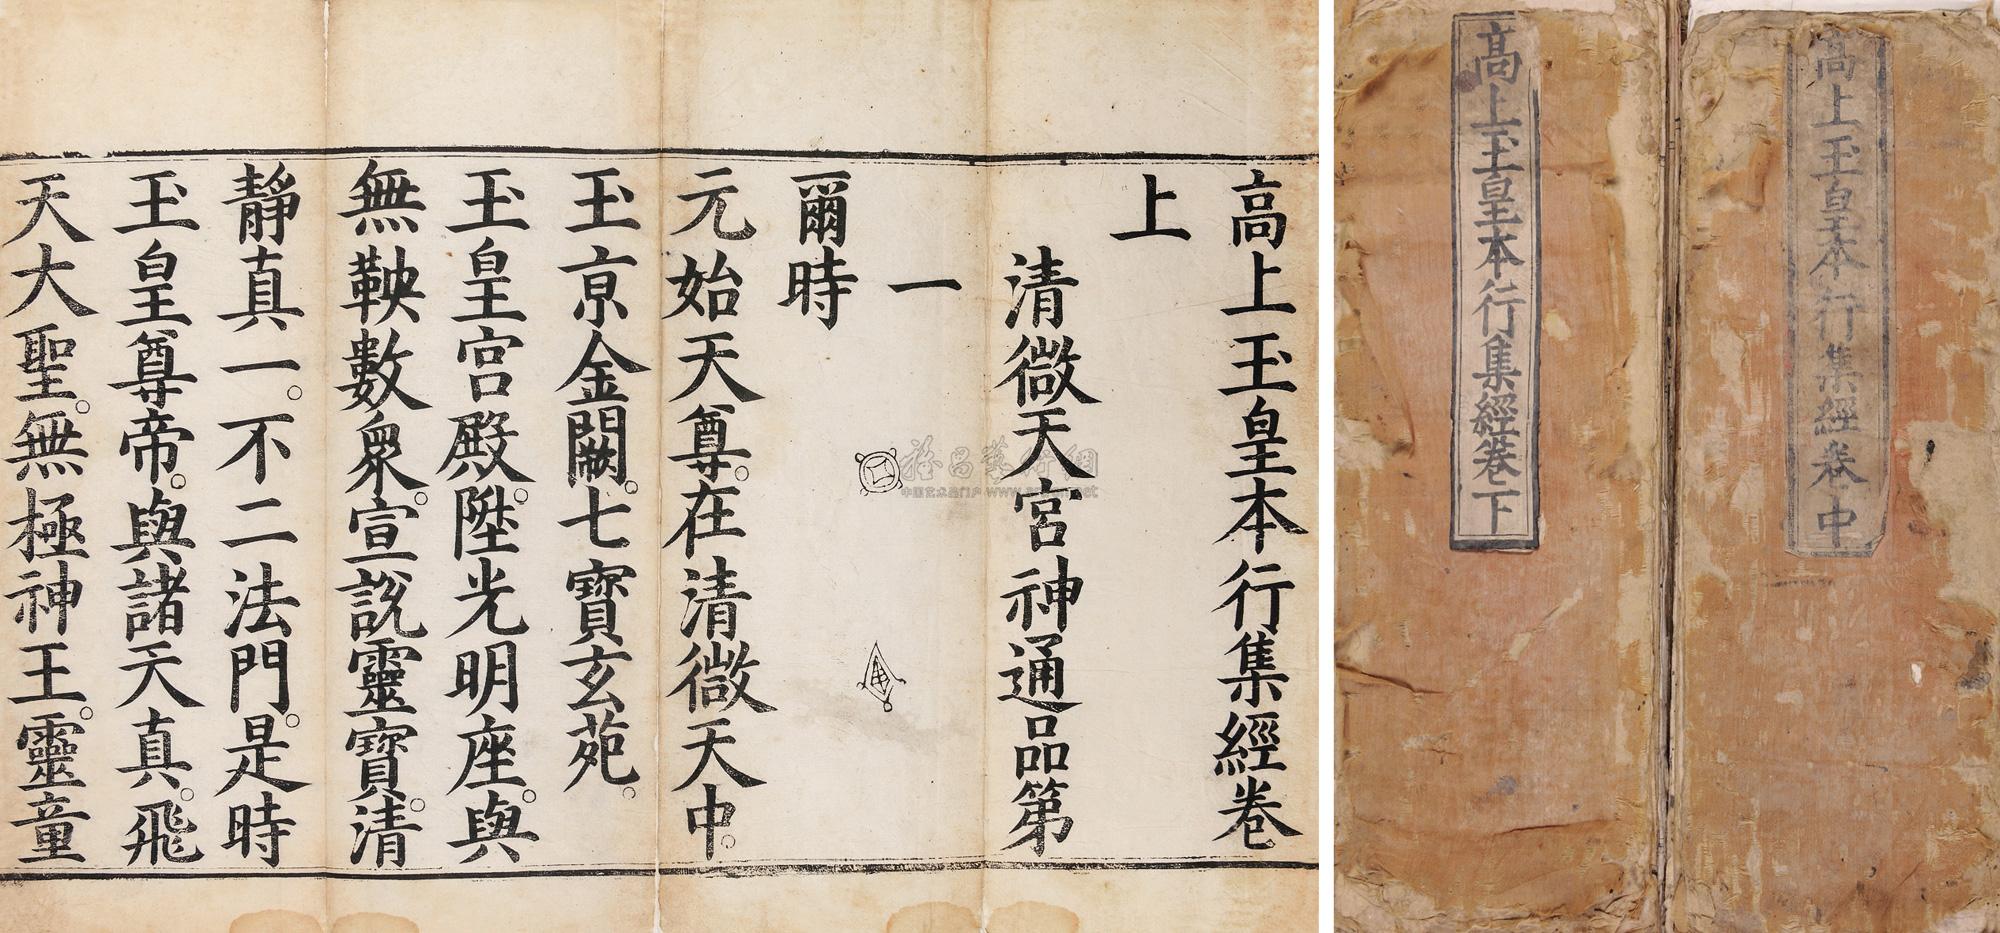 高上玉皇本行集經卷
上
清微天宮神通品第
一
爾時
元始天尊。在清微天中。
玉京金闕。七寶玄苑。
玉皇宮殿。陞光明座。與
無鞅數衆。宣說靈寶。清
靜真一。不二法門。是時
玉皇尊帝。與諸天真。飛
天大聖。無極神王。靈童
高上玉皇本行集經卷下
高上玉皇本行集經卷中